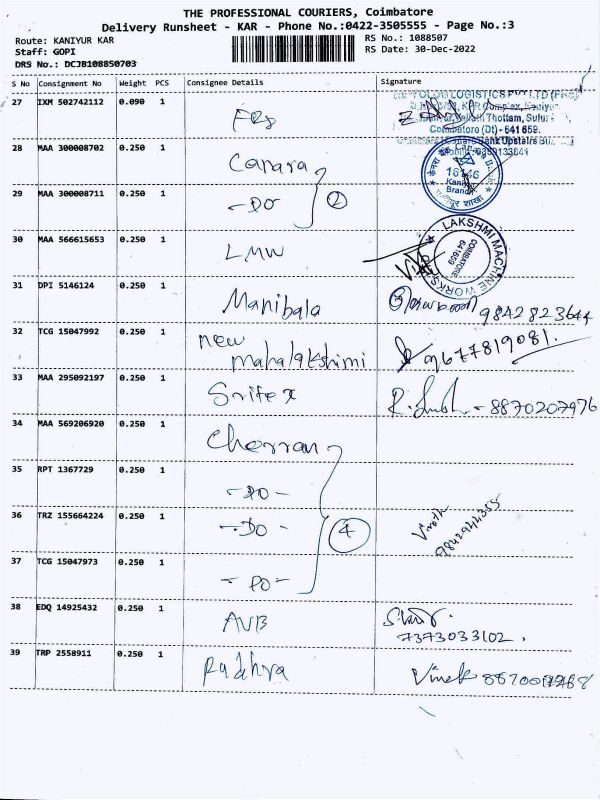 THE PROFESSIONAL COURIERS, Coimbatore
Delivery Runsheet - KAR - Phone No.:0422-3505555 - Page No.:3
Route: KANIYUR KAR
RS No.: 1088507
Staff: GOPI
RS Date: 30-Dec-2022
DRS No.: DCJB108850703
S No Consignment No Weight PCS Consignee Details Signature
27 IXM 502742112 0.090 1
Coimbatore (Dt) - 641 659.
28 MAA 300008702 0.250 1 Canara
16146
Branch
29 MAA 300008711 0.250 1 -DO- 2
30 MAA 566615653 0.250 1 LMW
LAKSHMI MACHINE WORKS
COIMBATORE
641659
31 DPI 5146124 0.250 1 Manibala 9842823644
32 TCG 15047992 0.250 1 New
Mahalakshimi 9677819081.
33 MAA 295092197 0.250 1 Sritex - 8870207976
34 MAA 569206920 0.250 1 Cherran
35 RPT 1367729 0.250 1 -DO-
36 TRZ 155664224 0.250 1 -DO- 4
37 TCG 15047973 0.250 1 -DO-
38 EDQ 14925432 0.250 1 AVB
7373033102.
39 TRP 2558911 0.250 1 Radhya Vinek